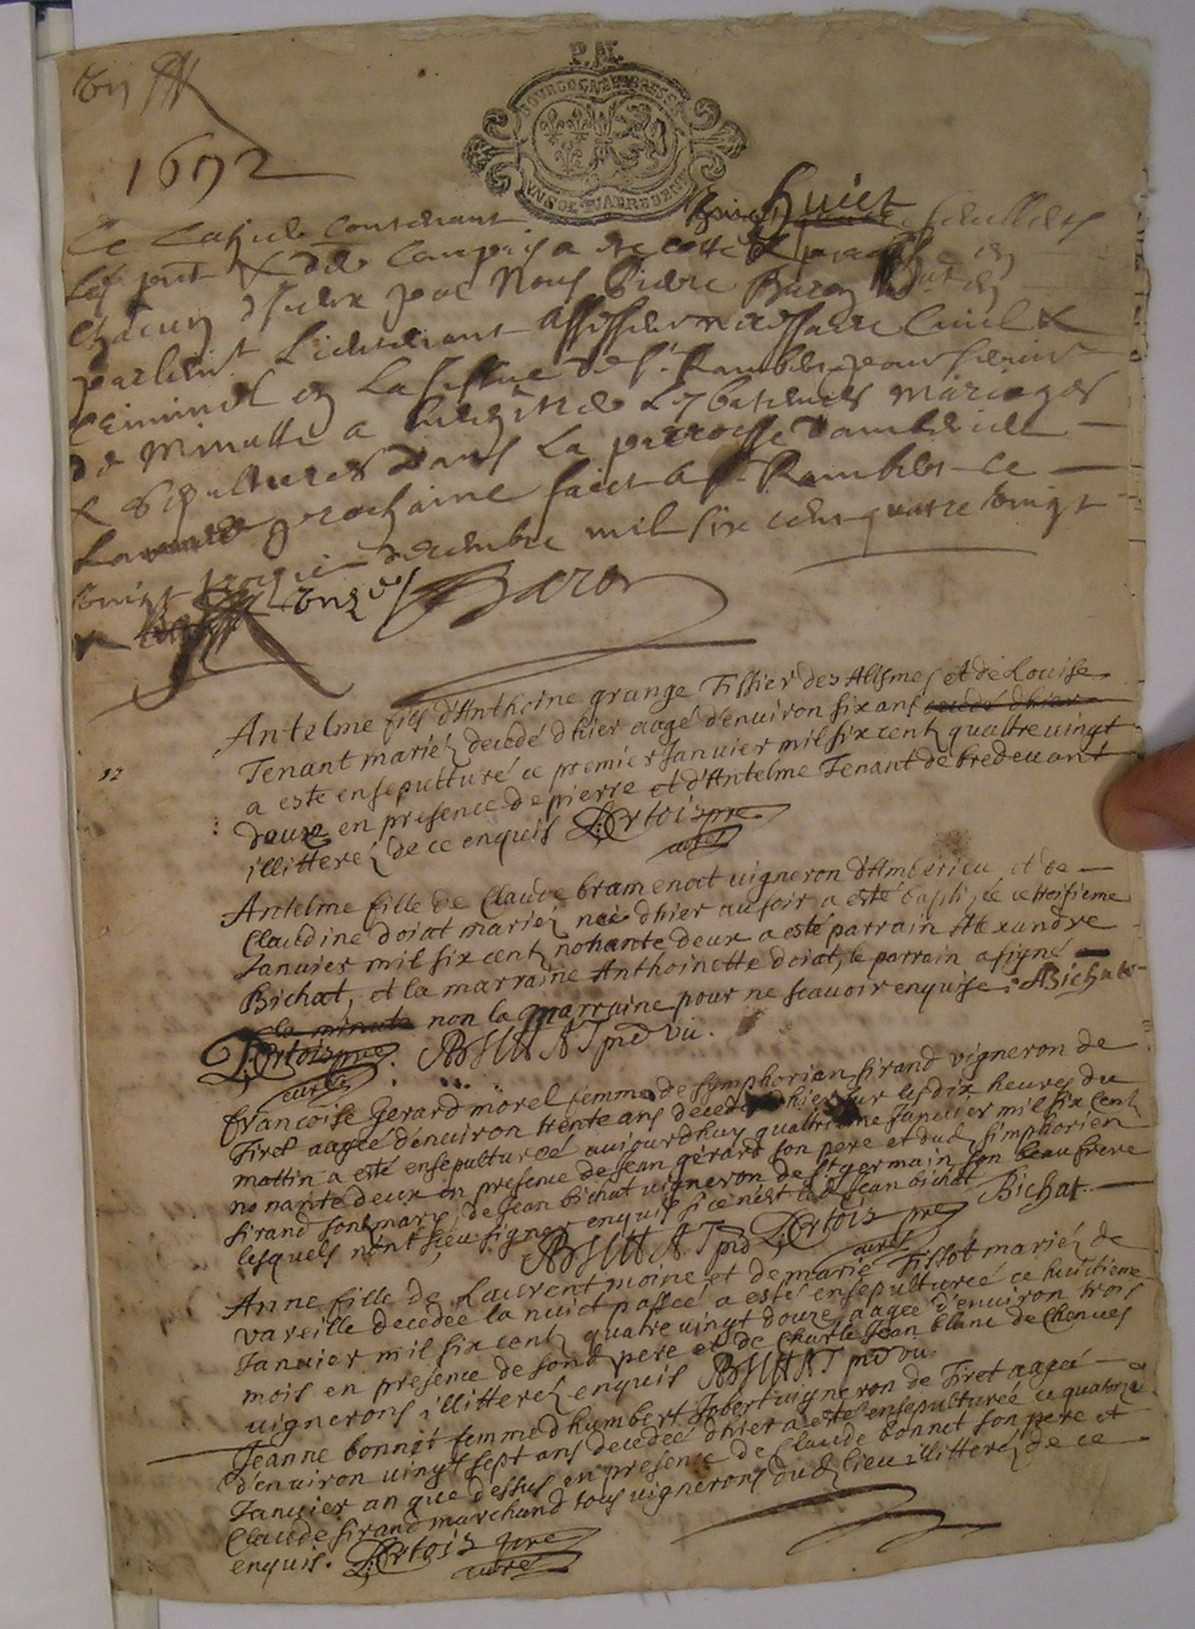 P.M.
BOURGOGNE BRESSE
UN SOL QUATRE DEN
1692
Ce Cahier Contenant huict feuillets
Chacun par Nous Pierre Baron
particulier Lieutenant Assesseur Civil &
Criminel en La de St Rambert pour servir
de Minutte a de baptemes Mariages
& sepultures dans La parroisse d'amberieu
prochaine faict a St Rambert ce
decembre mil six cens quatre vingt
Baron
Antelme fils d'Anthoine grange Tissier des Allymes et de Louise
Tenant mariéz decedé dhier aagé d'enuiron six ans
a esté ensepulturé ce premier Januier mil six centz quattre vingt
douze en presence de pierre et d'Antelme Tenant de bredeuant
illitteréz de ce enquis D: Ertois pre
curé
Antelme fille de Claude bramenot vigneron d'Amberieu et de
Claudine doiat mariéz neé dhier au soir a esté baptisée ce troisieme
Januier mil six centz nonante deux a esté parrain Alexandre
Bichat, et la marraine Anthoinette doiat, le parrain a signé
la minute non la marraine pour ne scauoir enquise. ABichat
D: Ertois pre
curé
francoise Gerard morel femme de Symphorian sirand vigneron de
Tiret aagée d'enuiron trente ans decedée dhier sur les dix heures du
mattin a esté ensepulturée aujourdhuy quattrieme Januier mil six centz
nonante deux en presence de Jean gerard son pere et dud. simphorien
sirand sond mary, de Jean bichat vigneron de St germain son beau frere
lesquels n'ont sceu signer enquis si ce n'est led. Jean bichat Bichat.
D: Ertois pre
curé
Anne fille de Laurent moine et de marie Tissot mariéz de
vareille decedée la nuict passeé a esté ensepulturée ce huictieme
Januier mil six centz quatre vingt douze aageé d'enuiron trois
mois en presence de sond pere et de Charle Jean blanc de Chenues
vignerons illitteréz enquis
Jeanne bonnet femme d'humbert Jobert vigneron de Tiret aageé
d'enuiron vingt sept ans decedeé dhier a esté ensepultureé ce quatorze
Januier an que dessus en presence de Claude bonnet son pere et
Claude sirand marchand tous vignerons dud. lieu illitteréz de ce
enquis. D: Ertois pre
curé